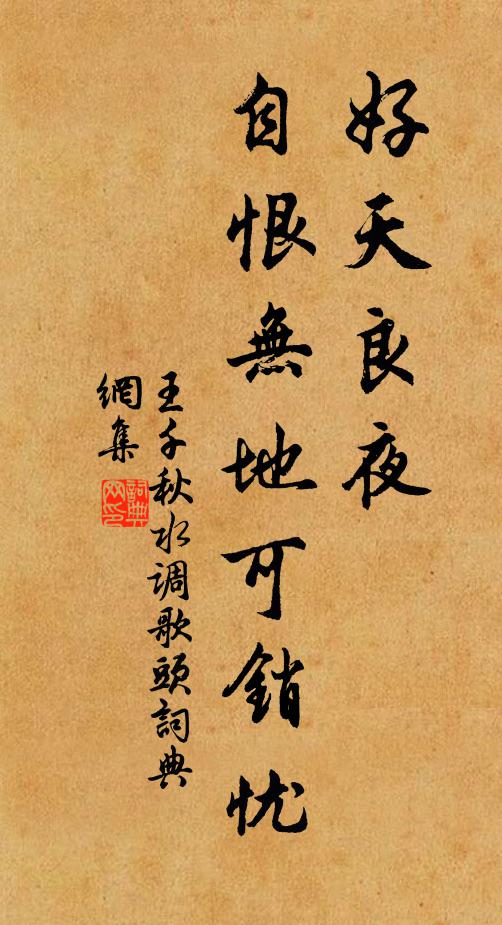 好天良夜
自恨無地可銷忧
王千秋水调歌頭詞典
網集
詞典網印